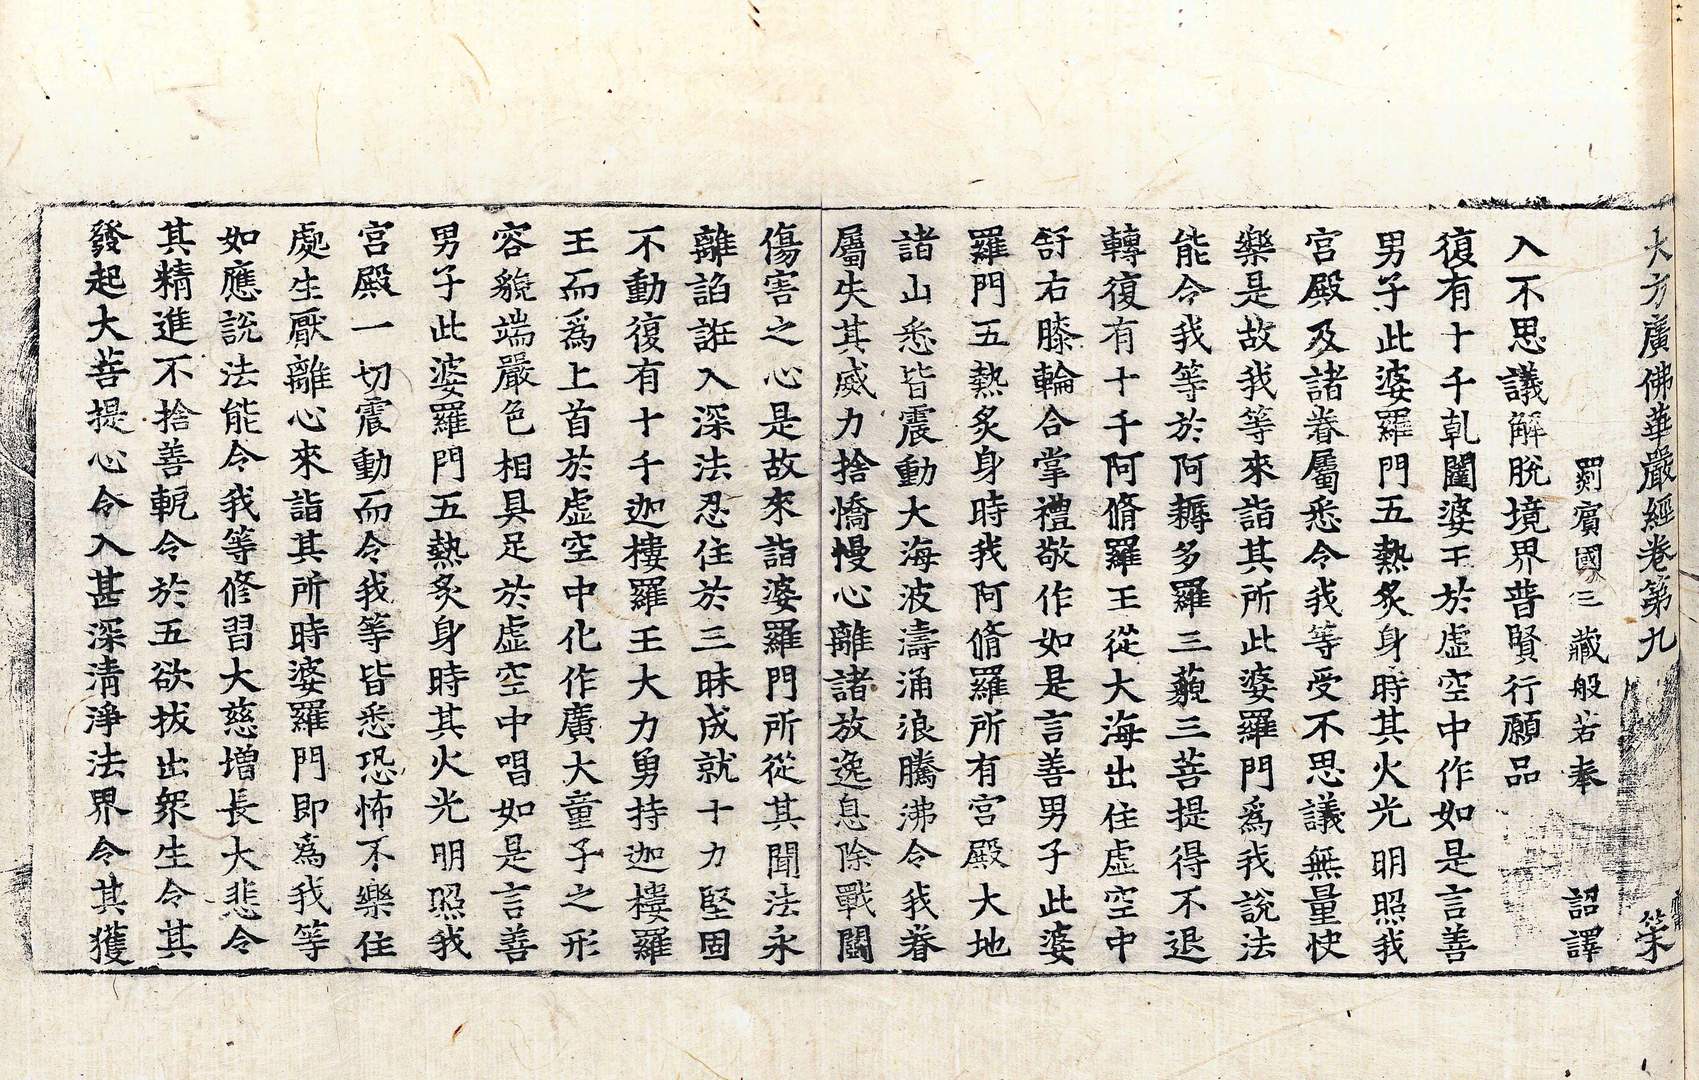 大方廣佛華嚴經卷第九 䇿
罽賓國三藏般若奉 詔譯
入不思議解脫境界普賢行願品
復有十千乹闥婆王於虛空中作如是言善
男子此婆羅門五熱炙身時其火光明照我
宮殿及諸眷屬悉令我等受不思議無量快
樂是故我等來詣其所此婆羅門爲我說法
能令我等於阿耨多羅三藐三菩提得不退
轉復有十千阿脩羅王從大海出住虛空中
舒右膝輪合掌禮敬作如是言善男子此婆
羅門五熱炙身時我阿脩羅所有宮殿大地
諸山悉皆震動大海波濤涌浪騰沸令我眷
屬失其威力捨憍慢心離諸放逸息除戰鬪
傷害之心是故來詣婆羅門所從其聞法永
離諂誑入深法忍住於三昧成就十力堅固
不動復有十千迦樓羅王大力勇持迦樓羅
王而爲上首於虛空中化作廣大童子之形
容貌端嚴色相具足於虛空中唱如是言善
男子此婆羅門五熱炙身時其火光明照我
宮殿一切震動而令我等皆悉恐怖不樂住
處生厭離心來詣其所時婆羅門即爲我等
如應說法能令我等修習大慈增長大悲令
其精進不捨善軛令於五欲拔出衆生令其
發起大菩提心令入甚深清淨法界令其獲